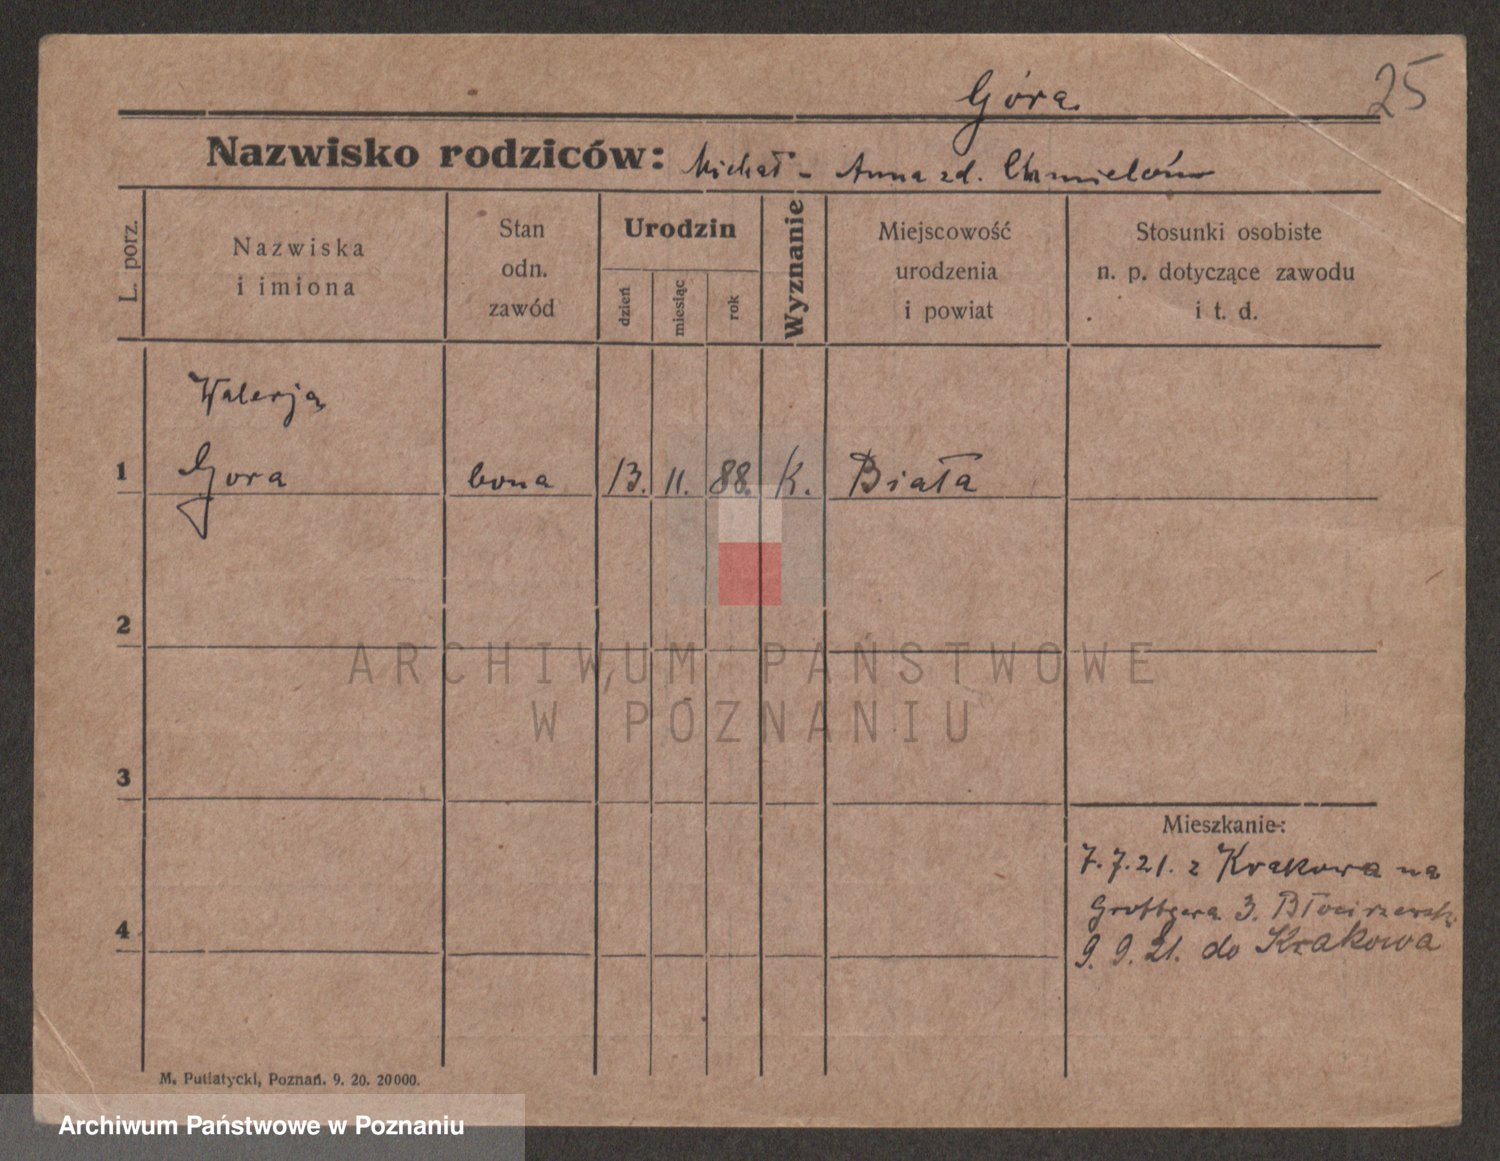 Góra
25
Nazwisko rodziców: Michał - Anna zd.
L. porz.
Nazwiska
i imiona
Stan
odn.
zawód
Urodzin
dzień
miesiąc
rok
Wyznanie
Miejscowość
urodzenia
i powiat
Stosunki osobiste
n. p. dotyczące zawodu
i t. d.
Walerja
1 Gora bona 13. 11. 88. K. Biała
2
ARCHIWUM PAŃSTWOWE
W POZNANIU
3
Mieszkanie:
7.7.21. z Krakowa na
Grottgera 3.
4
9. 9. 21. do Krakowa
M. Putiatycki, Poznań. 9. 20. 20000.
Archiwum Państwowe w Poznaniu